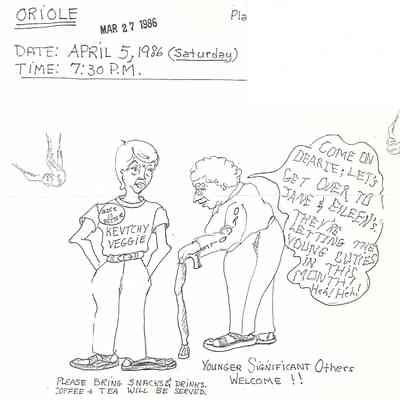 ORIOLE
MAR 27 1986
Pla
DATE: APRIL 5, 1986 (Saturday)
TIME: 7:30 P.M.
COME ON
DEARIE; LET'S
GET OVER TO
JANE & EILEEN'S.
THEY'RE
LETTING THE
YOUNG CUTIES
IN THIS
MONTH!
Heh! Heh!
KEVTCHY
VEGGIE
PLEASE BRING SNACKS & DRINKS.
COFFEE & TEA WILL BE SERVED.
YOUNGER SIGNIFICANT OTHERS
WELCOME !!